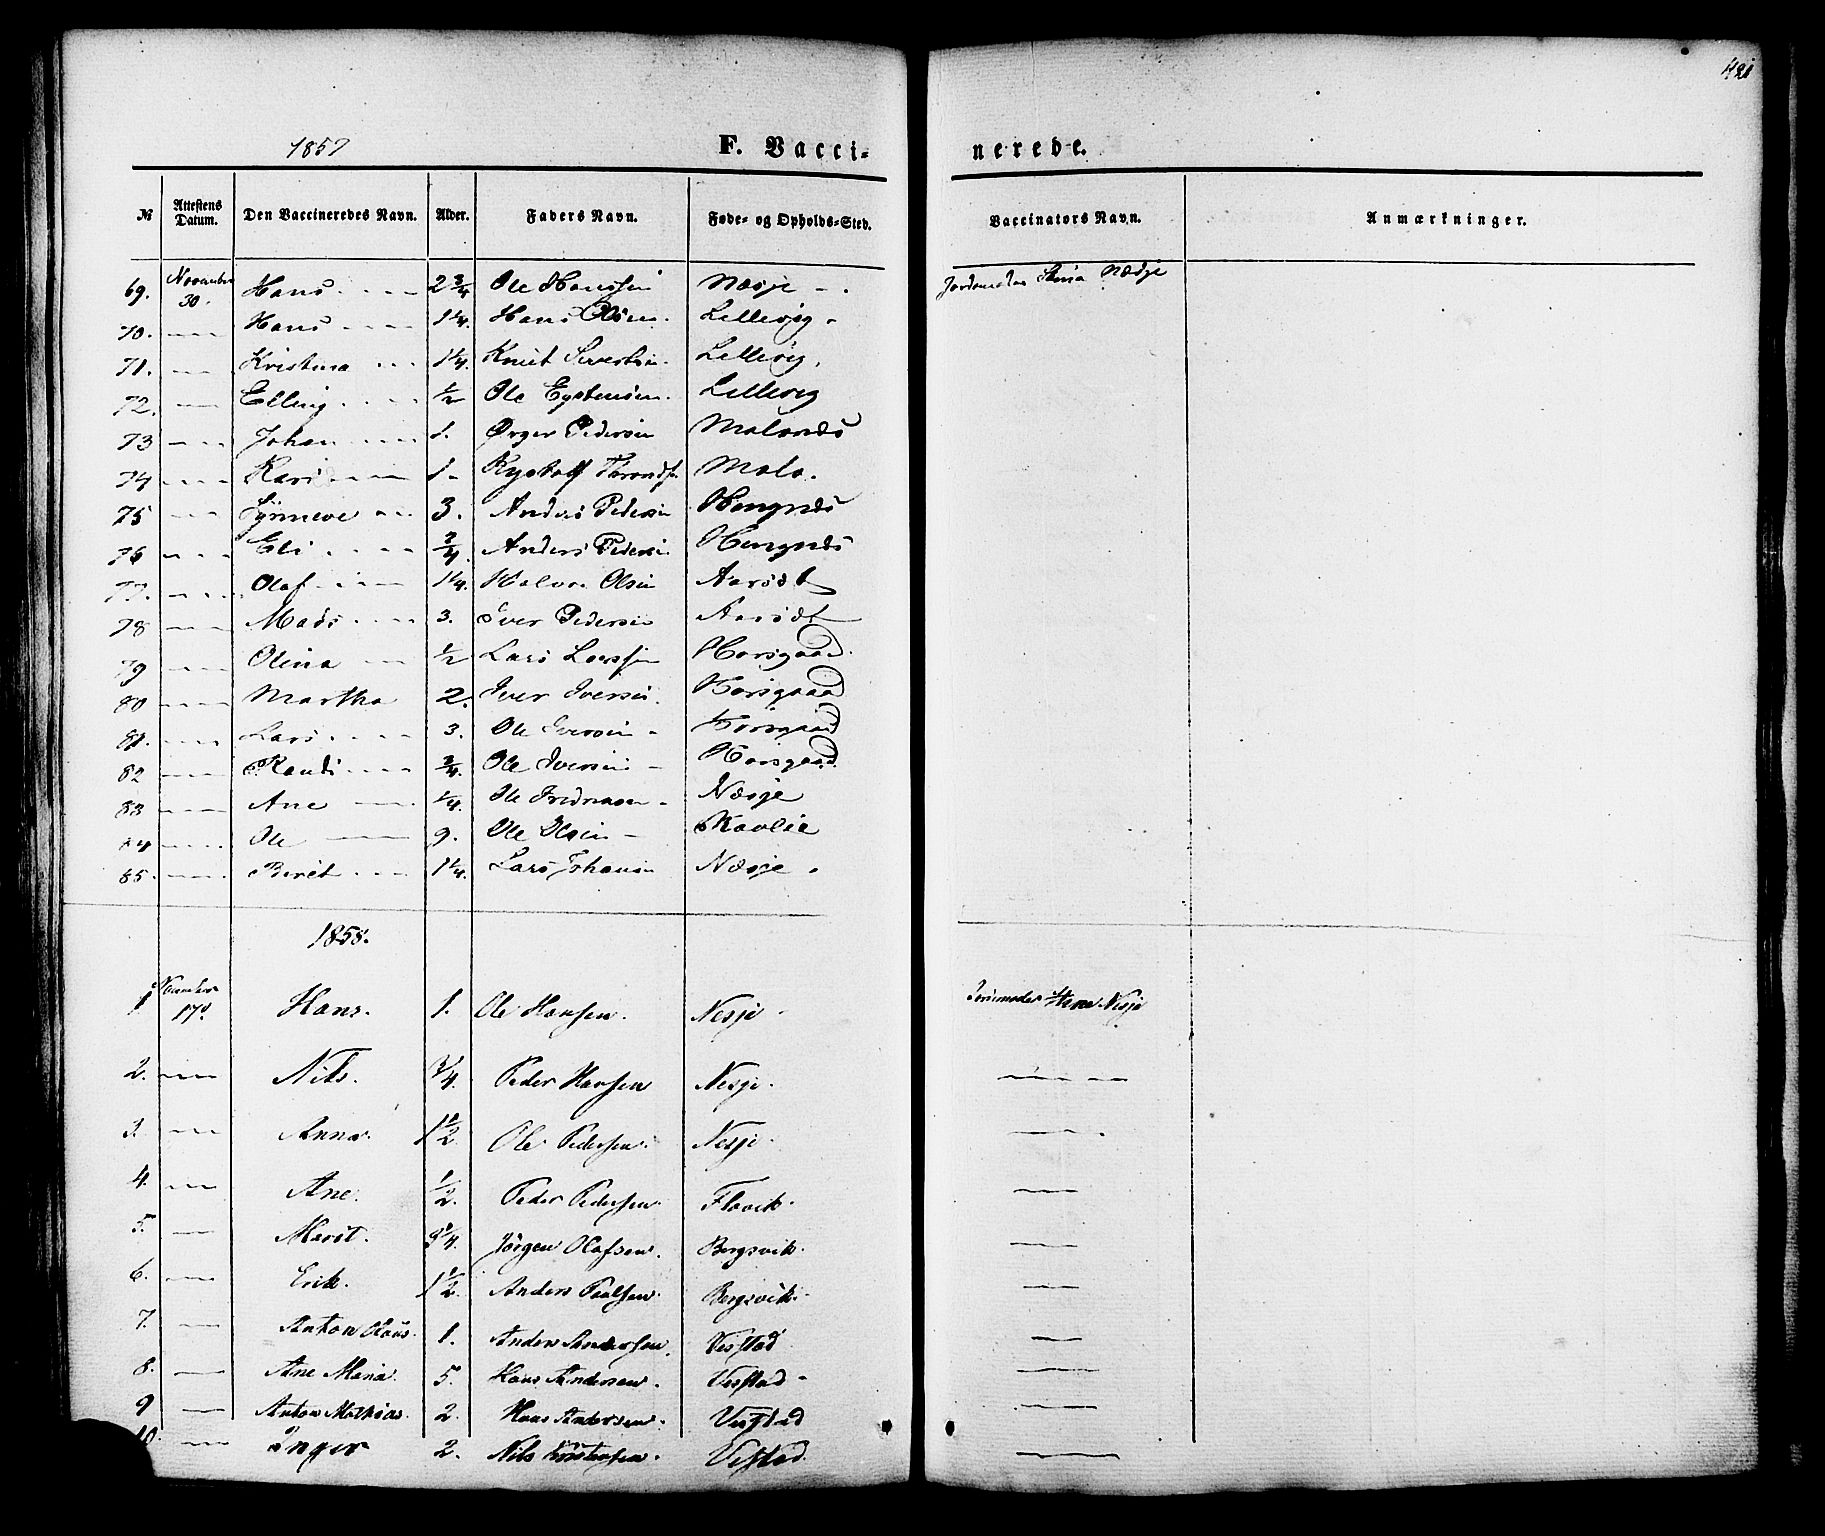 421
1857 F. Vacci- nerede.
№ Attestens Datum. Den Vaccineredes Navn. Alder. Faders Navn. Føde- og Opholds-Sted. Vaccinators Navn. Anmærkninger.
69. November 30. Hans 2 3/4 Ole Hanssen Næsje Jordemoder Næsje
70. Hans 1 1/4. Hans Olsen. Lillevig
71. Kristina 1 1/4. Knut Sivertsen. Lillevig.
72. Elling 1/2 Ole Eystensen. Lillevig
73 Johan 1. Ørger Pedersen Malanes
74 Kari 1 Malo.
75 Synneve 3. Anders Pedersen Hengnæs
76 Eli 3/4. Anders Pedersen Hengnæs
77. Olaf 1 1/4. Halvor Olsen Aarsæt
78 Mads 3. Iver Pedersen Aarsæt
79 Olina 1/2 Lars Larssen Horsgaad.
80 Martha 2. Iver Iversen. Horsgaad
81. Lars 3. Ole Iversen Horsgaad
82 Randi 3/4. Ole Iversen Horsgaad.
83 Ane 1/4. Ole Næsje
84 Ole 9. Ole Olsen Skavlie
85. Berit 1 1/4. Lars Johansen Næsje
1858.
1 November 17d. Hans. 1. Ole Hansen. Nesje Jordmoder Stina Nesje
2. Nils. 3/4. Peder Hansen Nesje.
3. Anna. 1 1/2. Ole Pedersen. Nesje.
4. Ane. 1/2. Peder Pedersen. Flovik.
5. Marit. 3 1/4. Jörgen Olafsen. Bergsvik.
6. Erik. 1 1/2. Anders Paulsen. Bergsvik.
7. Anton Olaus. 1. Anders Andersen. Vestad
8. Ane Maria. 5. Hans Andersen. Vestad
9 Anton Mathias. 2. Hans Andersen. Vestad
10. Inger 2. Nils Kristensen. Vestad.